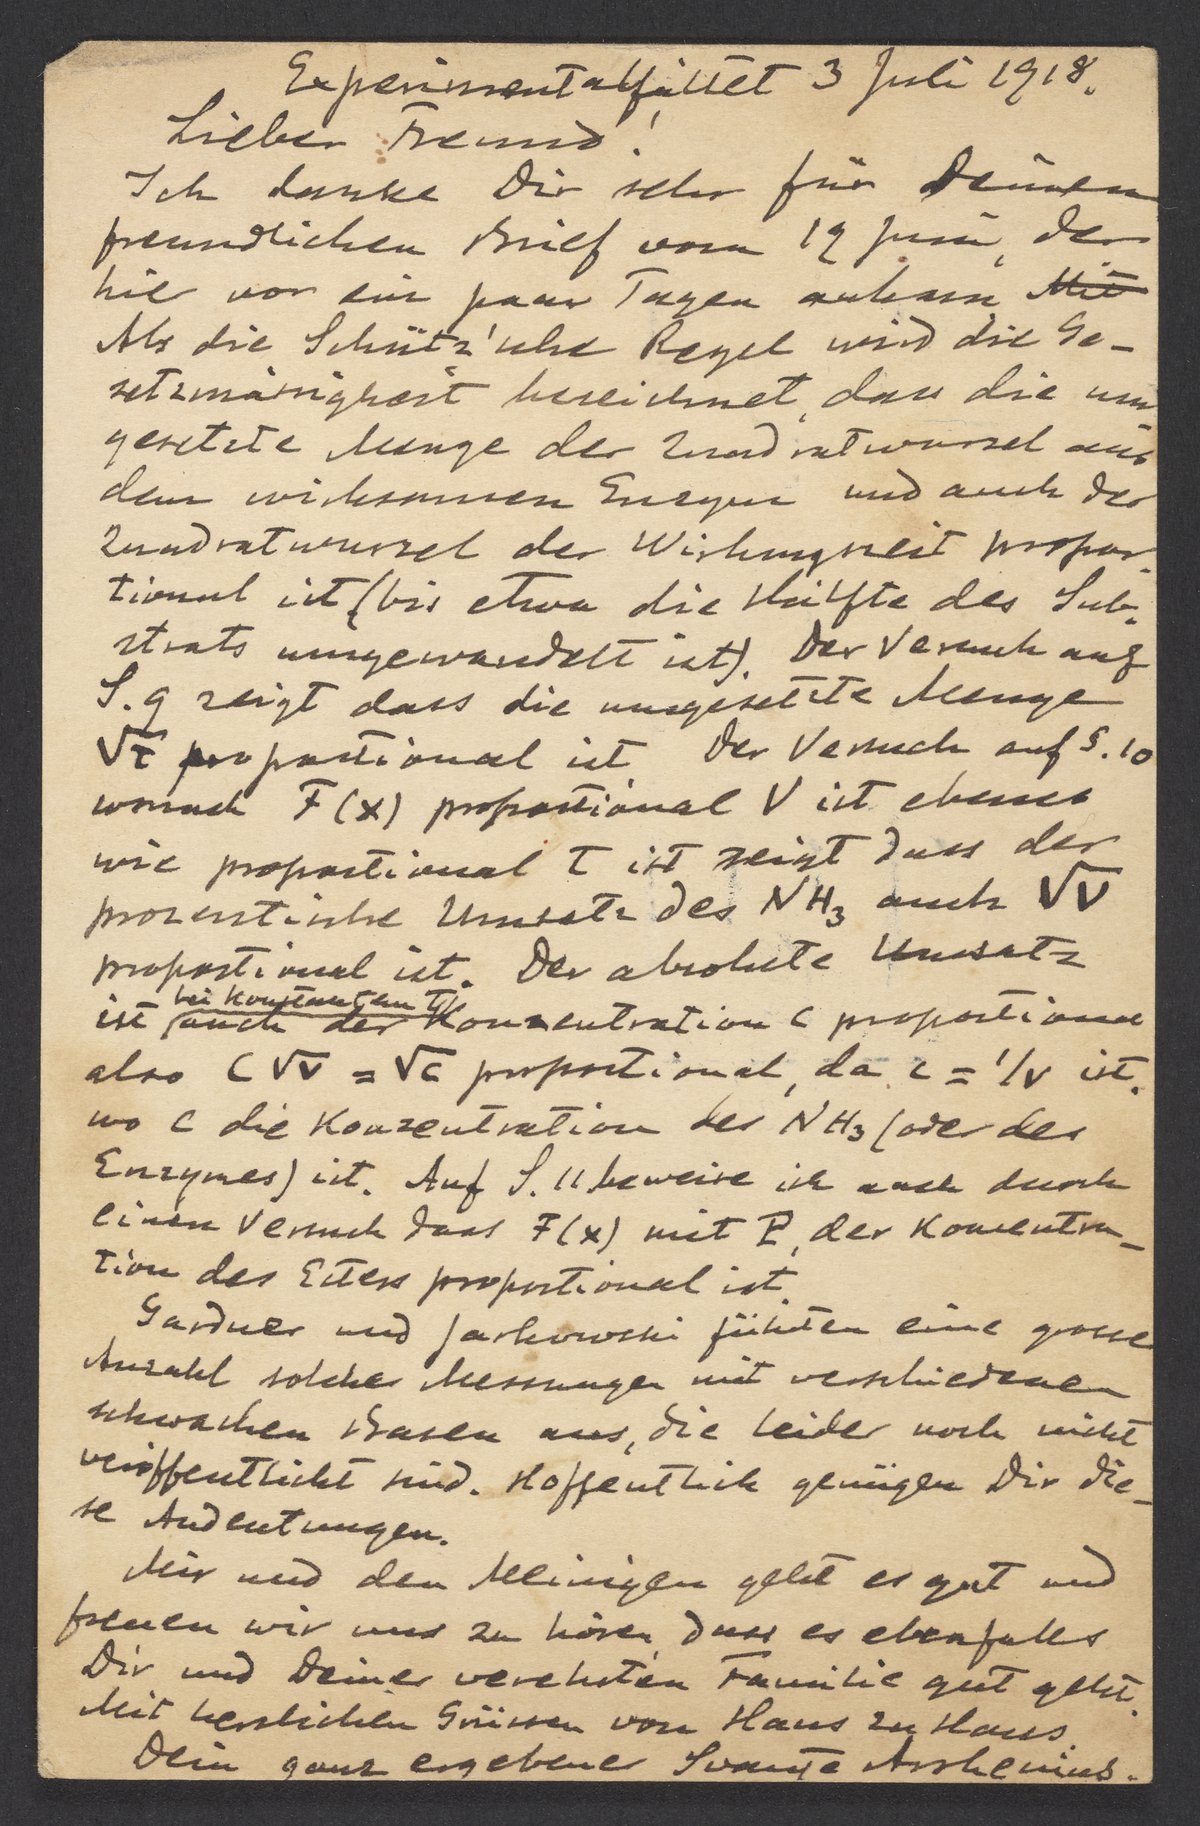 Experimentalfältet 3 Juli 1918.
Lieber Freund!
Ich danke Dir sehr für Deinen
freundlichen Brief vom 19 Juni, der
hier vor ein paar Tagen ankam. Mit
Als die Schütz'sche Regel wird die Ge-
setzmässigkeit bezeichnet, dass die um
gesetzte Menge der Quadratwurzel aus
dem wirksamen Enzym und auch der
Quadratwurzel der Wirkungszeit propor-
tional ist (bis etwa die Hälfte des Sub-
strats umgewandelt ist). Der Versuch auf
S. 9 zeigt dass die umgesetzte Menge
√t proportional ist. Der Versuch auf S. 10
wonach F(x) proportional V ist ebenso
wie proportional t ist zeigt dass der
prozentische Umsatz des NH3 auch √V
proportional ist. Der absolute Umsatz
bei konstantem
ist auch der Konzentration C proportional
also C√V = √C proportional, da C = 1/V ist.
wo C die Konzentration des NH3 (oder des
Enzymes) ist. Auf S. 11 beweise ich auch durch
einen Versuch dass F(x) mit E, der Konzentra-
tion des Esters proportional ist.
Gardner und führten eine grosse
Anzahl solcher Messungen mit verschiedenen
schwachen Basen aus, die leider noch nicht
veröffentlicht sind. Hoffentlich genügen Dir die-
se Andeutungen.
Mir und den Meinigen geht es gut und
freuen wir uns zu hören dass es ebenfalls
Dir und Deiner verehrten Familie gut geht.
Mit herzlichen Grüssen von Haus zu Haus.
Dein ganz ergebener Svante Arrhenius.